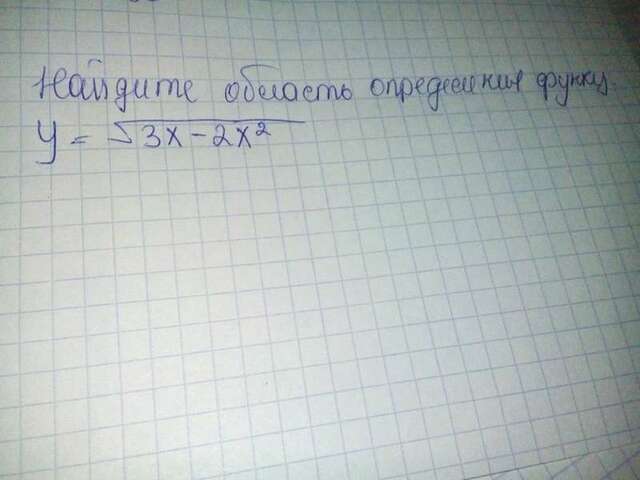 Найдите область определения функц.
y = √3x - 2x²